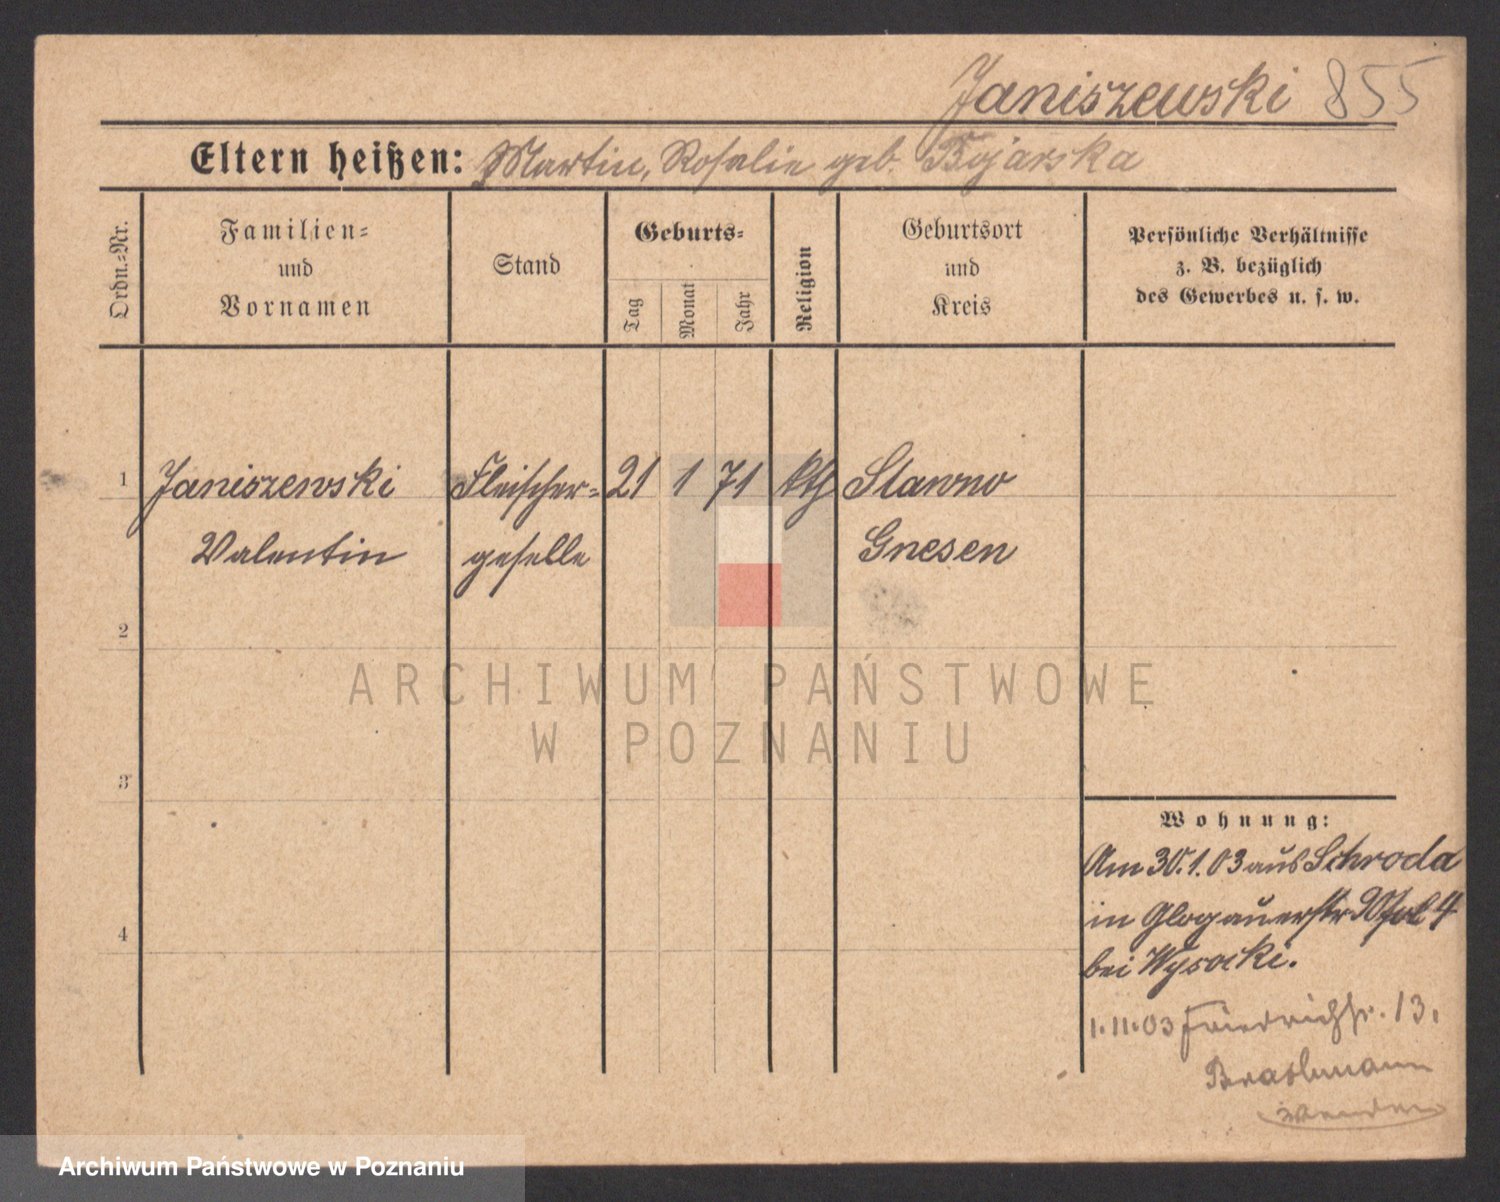 Janiszewski 855
Eltern heißen: Martin, Rosalie geb. Bojarska
Ordn.-Nr.
Familien-
und
Vornamen
Stand
Geburts-
Tag
Monat
Jahr
Religion
Geburtsort
und
Kreis
Persönliche Verhältnisse
z. B. bezüglich
des Gewerbes u. s. w.
1 Janiszewski Fleischer- 21 1 71 kth Slawno
Valentin geselle Gnesen
2
3
4
ARCHIWUM PAŃSTWOWE
W POZNANIU
Wohnung:
Am 30.1.03 aus Schroda
in Glogauerstr 90
bei Wysocki.
1.11.03 Friedrichstr. 13.
Archiwum Państwowe w Poznaniu